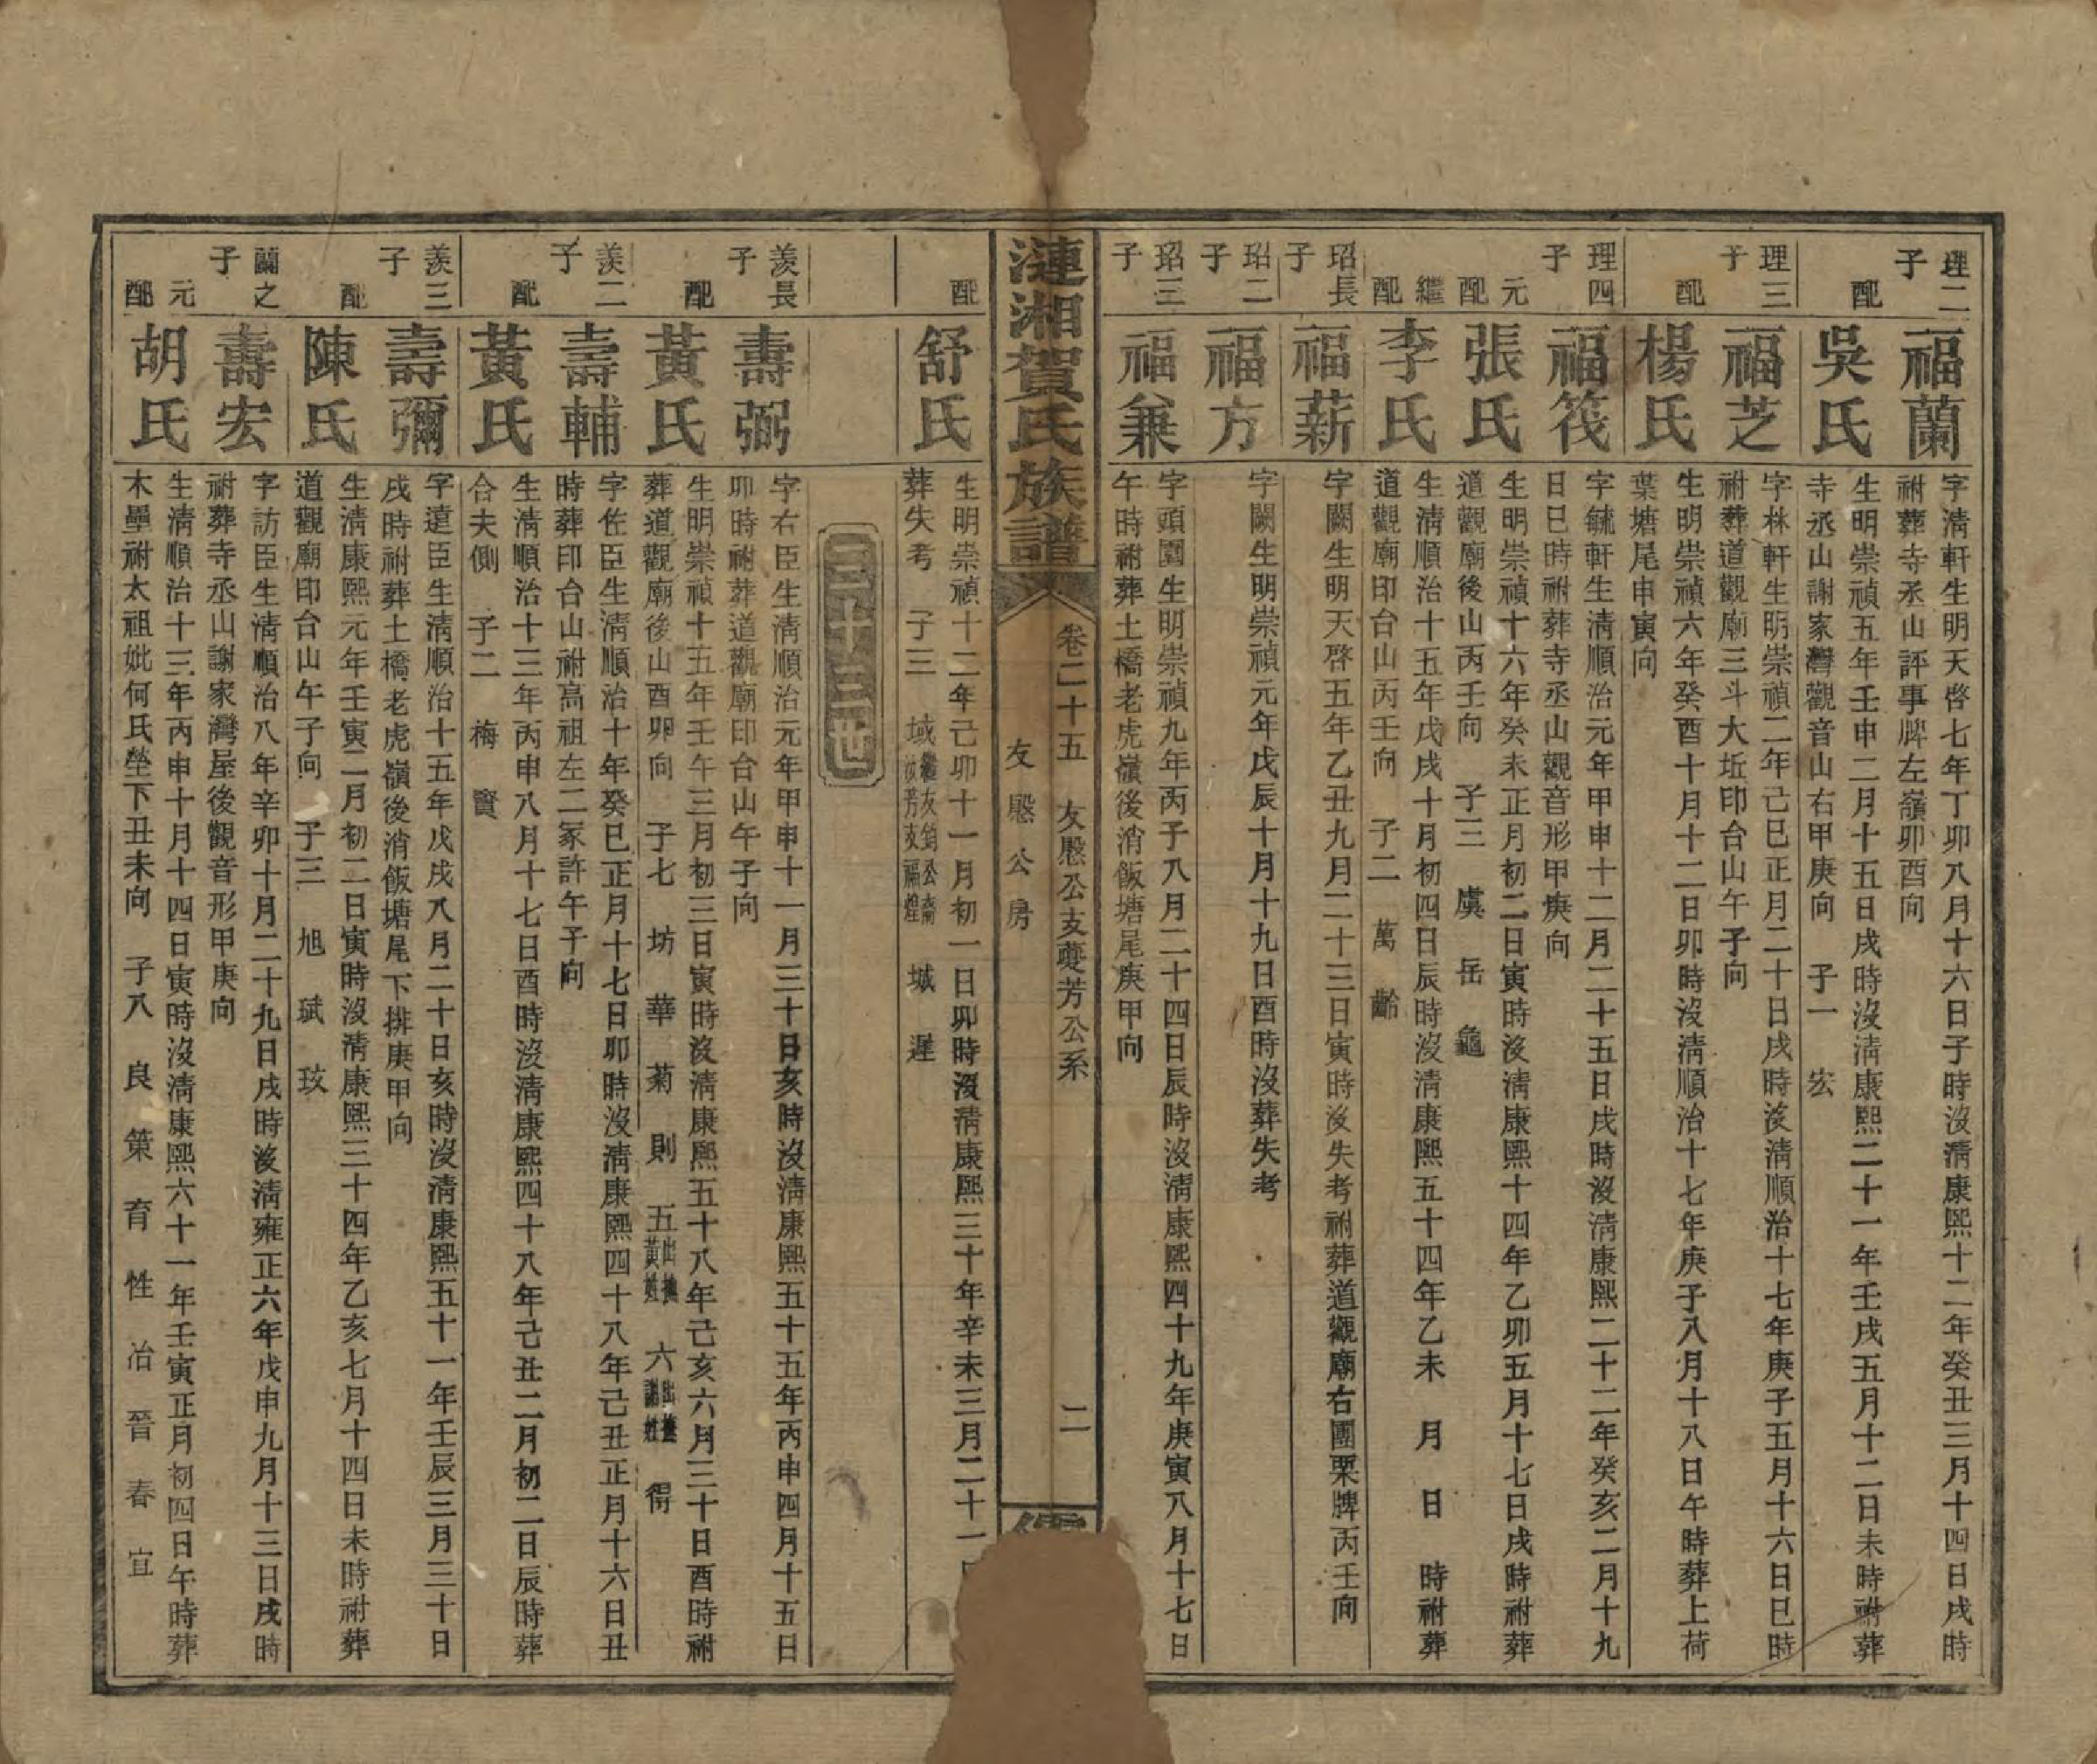 理二子
福蘭
字淸軒生明天啓七年丁卯八月十六日子時沒淸康熙十二年癸丑三月十四日戌時
祔葬寺丞山評事牌左嶺卯酉向
配
吳氏
生明崇禎五年壬申二月十五日戌時沒淸康熙二十一年壬戌五月十二日未時祔葬
寺丞山謝家灣觀音山右甲庚向　子一　宏
理三子
福芝
字林軒生明崇禎二年己巳正月二十日戌時沒淸順治十七年庚子五月十六日巳時
祔葬道觀廟三斗大坵印台山午子向
配
楊氏
生明崇禎六年癸酉十月十二日卯時沒淸順治十七年庚子八月十八日午時葬上荷
葉塘尾申寅向
理四子
福筏
字毓軒生淸順治元年甲申十二月二十五日戌時沒淸康熙二十二年癸亥二月十九
日巳時祔葬寺丞山觀音形甲庚向
元配
張氏
生明崇禎十六年癸未正月初二日寅時沒淸康熙十四年乙卯五月十七日戌時祔葬
道觀廟後山丙壬向　子三　虞　岳　龜
繼配
李氏
生淸順治十五年戊戌十月初四日辰時沒淸康熙五十四年乙未　月　日　時祔葬
道觀廟印台山丙壬向　子二　萬　齡
玿長子
福薪
字闕生明天啓五年乙丑九月二十三日寅時沒失考祔葬道觀廟右團栗牌丙壬向
玿二子
福方
字闕生明崇禎元年戊辰十月十九日酉時沒葬失考
玿三子
福兼
字頭園生明崇禎九年丙子八月二十四日辰時沒淸康熙四十九年庚寅八月十七日
午時祔葬土橋老虎嶺後消飯塘尾庚甲向
漣湘賀氏族譜
卷二十五　友慇公支蘷芳公系　二
友慇公房
配
舒氏
生明崇禎十二年己卯十一月初一日卯時沒淸康熙三十年辛未三月二十一
葬失考　子三　域　城　遲
二十三世
羨長子
壽弼
字右臣生淸順治元年甲申十一月三十日亥時沒淸康熙五十五年丙申四月十五日
卯時祔葬道觀廟印台山午子向
配
黃氏
生明崇禎十五年壬午三月初三日寅時沒淸康熙五十八年己亥六月三十日酉時祔
葬道觀廟後山酉卯向　子七　坊　華　菊　則　五出撫黃姓　六出撫謝姓　得
羨二子
壽輔
字佐臣生淸順治十年癸巳正月十七日卯時沒淸康熙四十八年己丑正月十六日丑
時葬印台山祔高祖左二冢許午子向
配
黃氏
生淸順治十三年丙申八月十七日酉時沒淸康熙四十八年己丑二月初二日辰時葬
合夫側　子二　梅　賓
羨三子
壽彌
字遠臣生淸順治十五年戊戌八月二十日亥時沒淸康熙五十一年壬辰三月三十日
戌時祔葬土橋老虎嶺後消飯塘尾下排庚甲向
配
陳氏
生淸康熙元年壬寅二月初二日寅時沒淸康熙三十四年乙亥七月十四日未時祔葬
道觀廟印台山午子向　子三　旭　斌　玫
蘭之子
壽宏
字訪臣生淸順治八年辛卯十月二十九日戌時沒淸雍正六年戊申九月十三日戌時
祔葬寺丞山謝家灣屋後觀音形甲庚向
元配
胡氏
生淸順治十三年丙申十月十四日寅時沒淸康熙六十一年壬寅正月初四日午時葬
木壘祔太祖妣何氏塋下丑未向　子八　良　策　育　性　冶　晉　春　宜